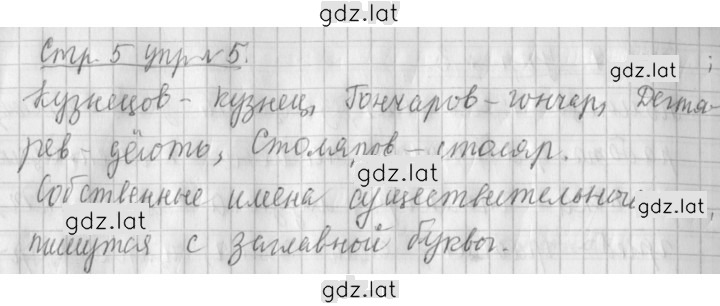 gdz.lat
Стр. 5 упр № 5.
gdz.lat
Кузнецов - кузнец, Гончаров - гончар, Дегтя-
рев - дёготь, Столяров - столяр.
gdz.lat
Собственные имена существительные
gdz.lat
gdz.lat
пишутся с заглавной буквы.
gdz.lat